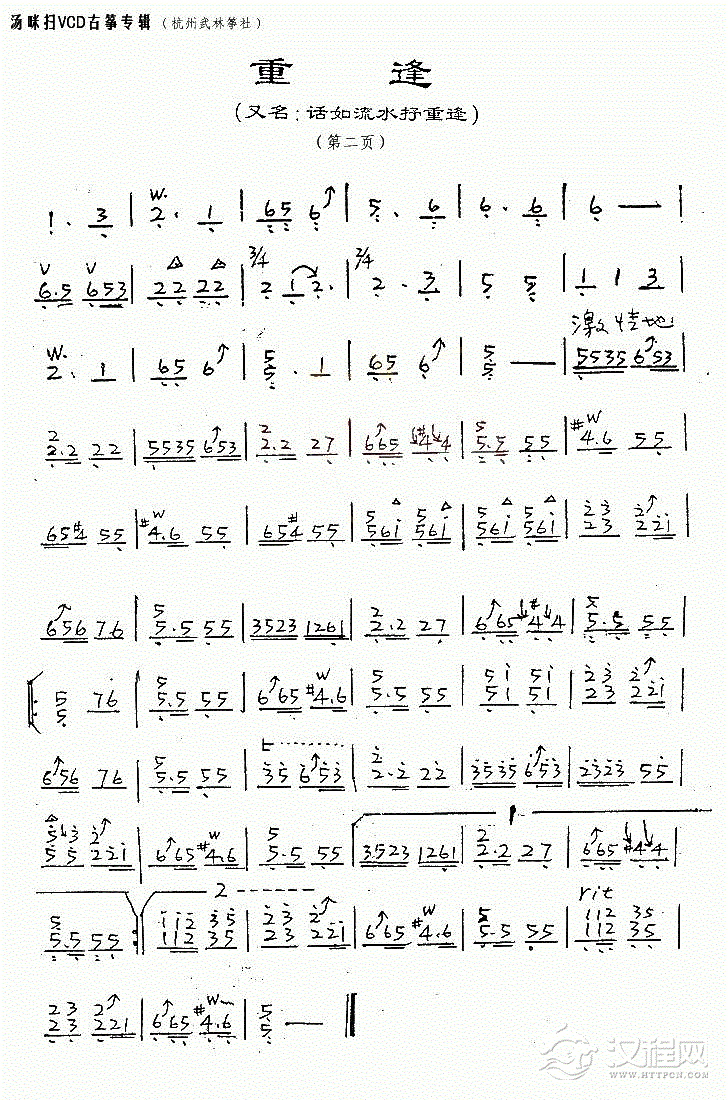 汤咪扫VCD古筝专辑（杭州武林筝社）
重 逢
（又名：话如流水抒重逢）
（第二页）
1. 3 | 2. 1 | 65 6 | 5. 6 | 6. 6 | 6 — |
6.5 653 | 22 22 | 3/4 2 1 2. | 2/4 2. 3 | 5 5 | 1 1 3 |
激情地
2. 1 | 65 6 | 5 . 1 | 65 6 | 5 — | 5535 653 |
2.2 22 | 5535 653 | 2.2 27 | 665 #44 | 5.5 55 | #4.6 55 |
65#4 55 | #4.6 55 | 65#4 55 | 561 561 | 561 561 | 23 221 |
656 76 | 5.5 55 | 3523 1261 | 2.2 27 | 665 #44 | 5.5 55 |
5 76 | 5.5 55 | 665 #4.6 | 5.5 55 | 51 51 | 23 221 |
656 76 | 5.5 55 | 35 653 | 2.2 22 | 3535 653 | 2323 55 |
1
55 221 | 665 #4.6 | 5.5 55 | 3523 1261 | 2.2 27 | 665 #44 |
2
rit
5.5 55 | 112 35 | 23 221 | 665 #4.6 | 5.5 55 | 112 35 |
23 221 | 665 #4.6 | 5 —
汉程网
WWW.HTTPCN.COM